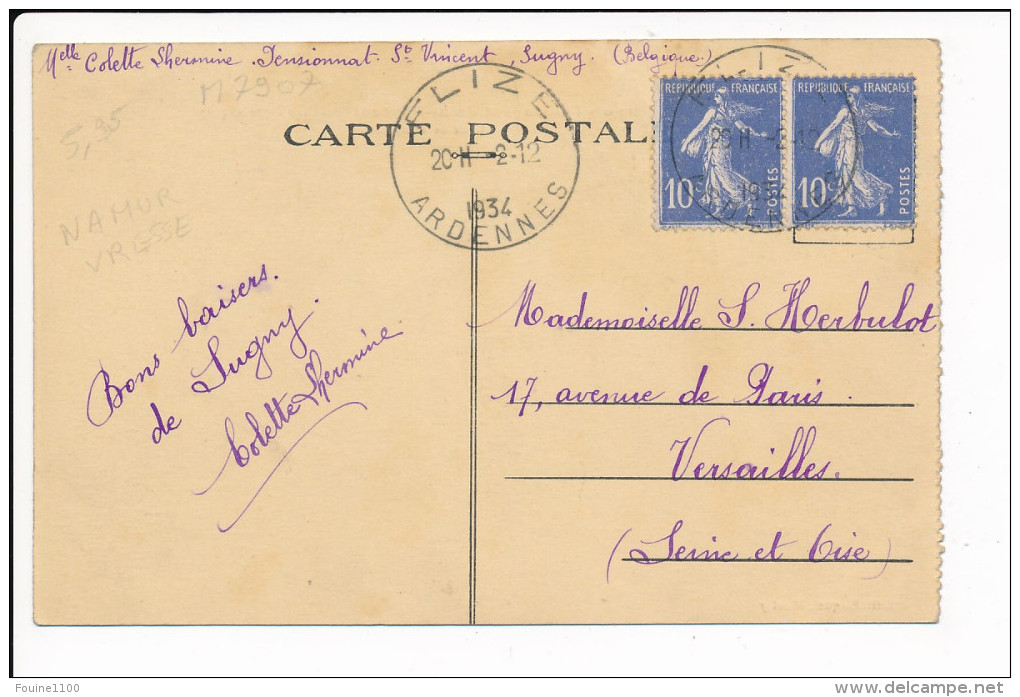 Melle Colette Lhermine. Pensionnat St Vincent, Sugny. (Belgique.)
M7907
5,95
CARTE POSTALE
FLIZE
20 H -2-12
1934
ARDENNES
RÉPUBLIQUE FRANÇAISE
10c
POSTES
RÉPUBLIQUE FRANÇAISE
10c
POSTES
NAMUR
VRESSE
Bons baisers.
de Sugny.
Colette Lhermine
Mademoiselle S. Herbulot
17, avenue de Paris.
Versailles.
(Seine et Oise)
Fouine1100
delcampe.net